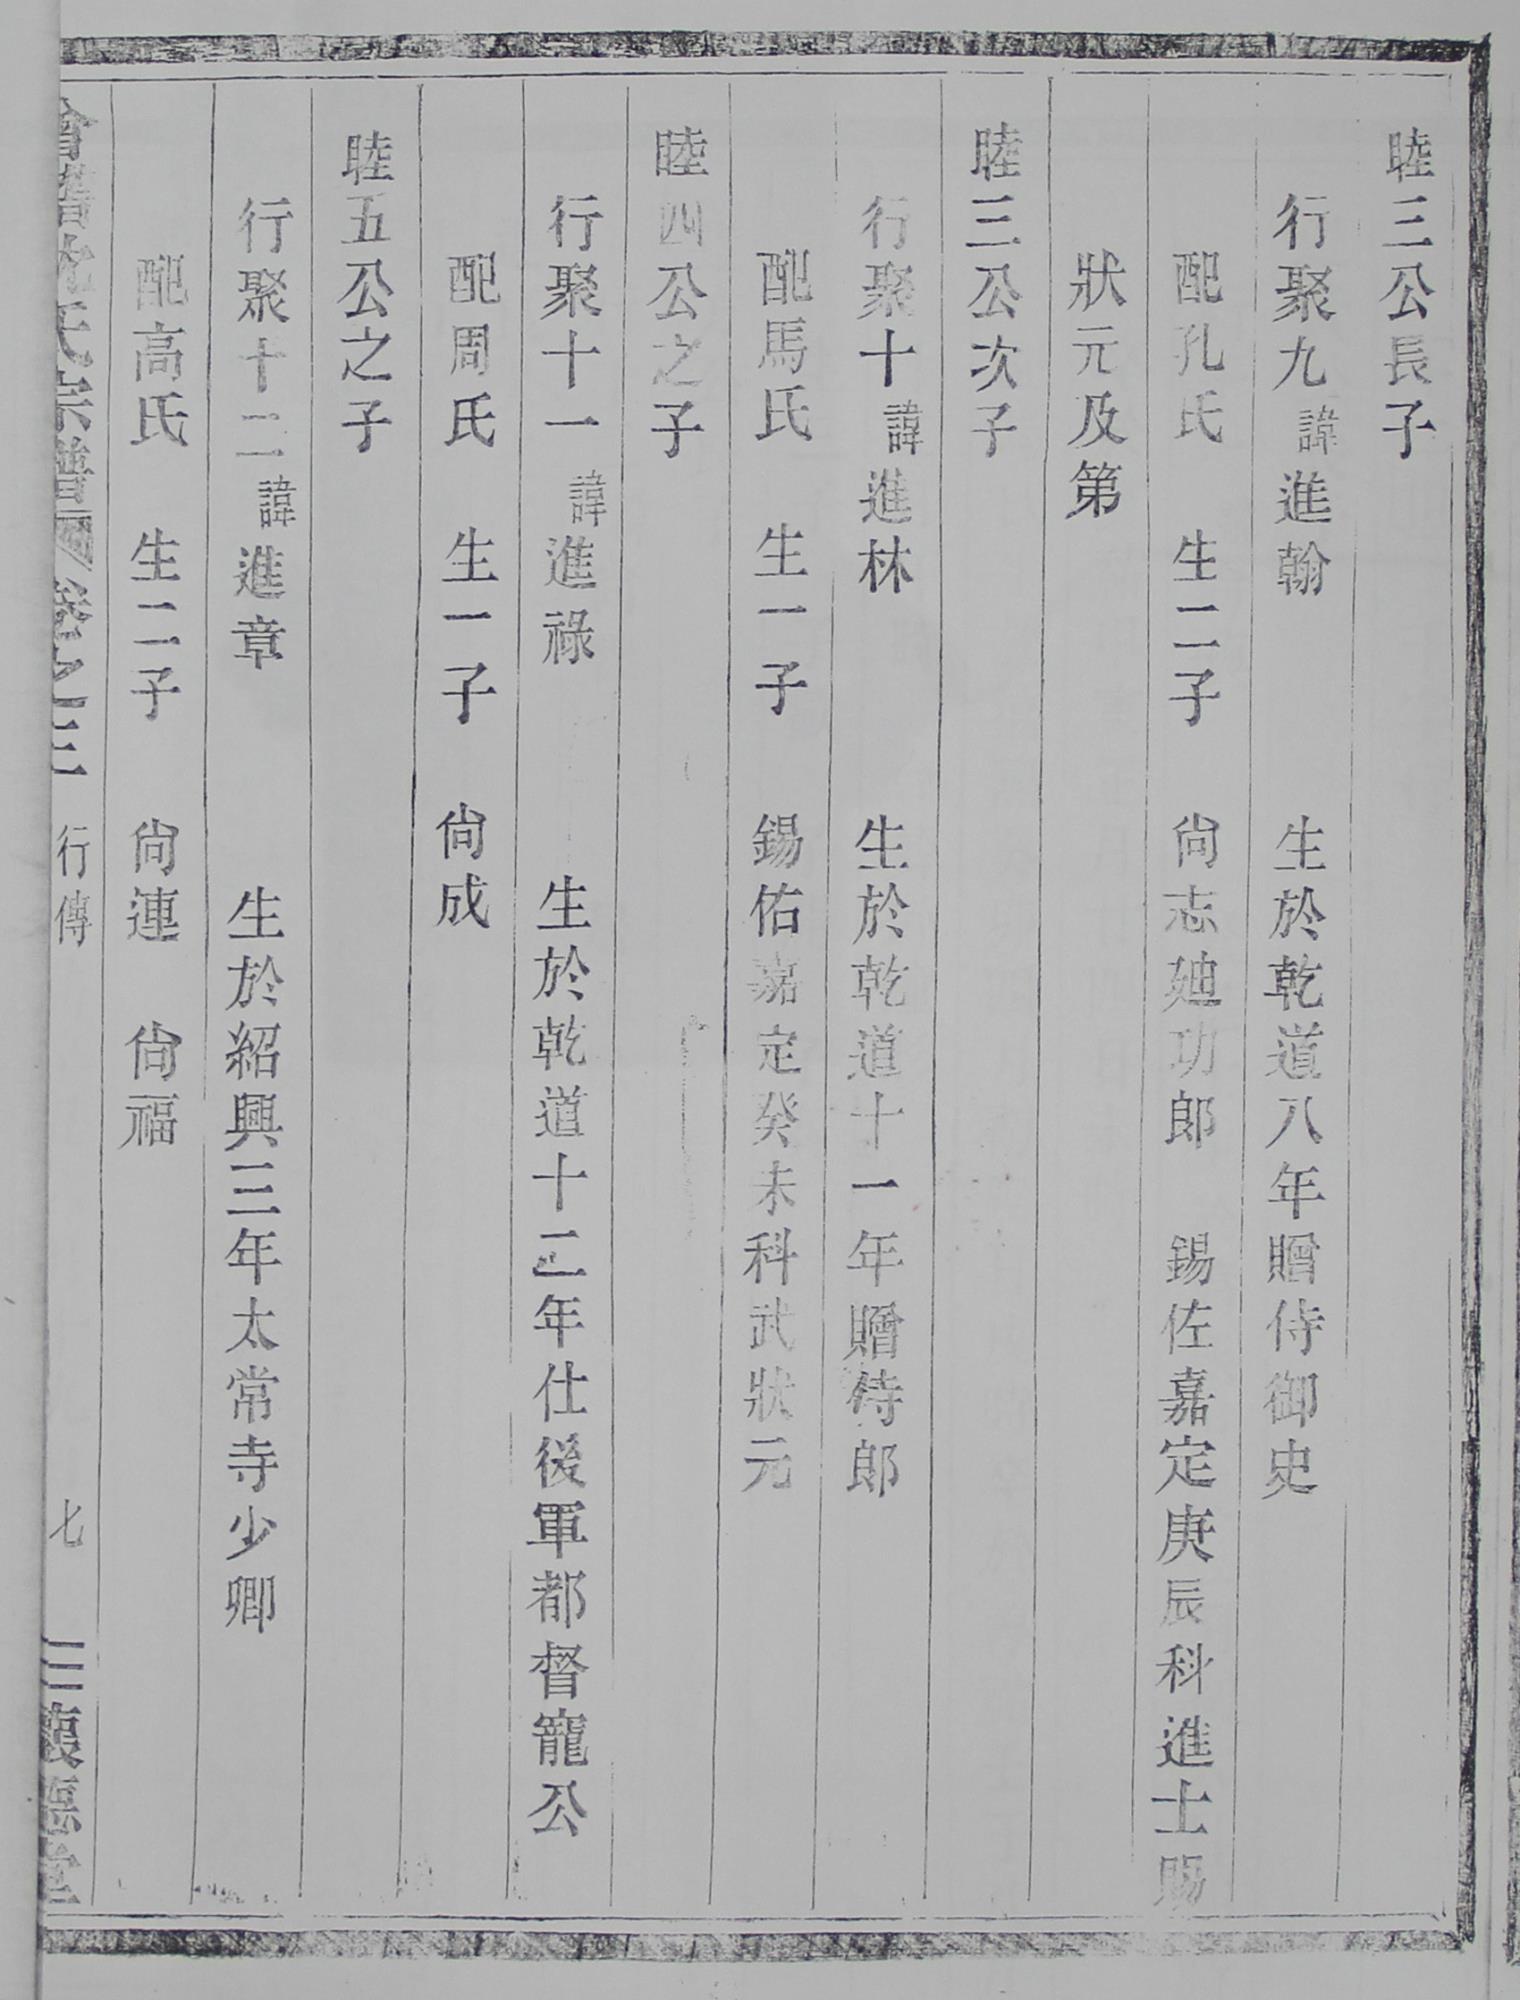 睦三公長子
行聚九諱進翰 生於乾道八年贈侍御史
配孔氏 生二子 尙志廸功郎 錫佐嘉定庚辰科進士賜
狀元及第
睦三公次子
行聚十諱進林 生於乾道十一年贈侍郎
配馬氏 生一子 錫佑嘉定癸未科武狀元
睦四公之子
行聚十一諱進祿 生於乾道十二年仕後軍都督寵公
配周氏 生一子 尙成
睦五公之子
行聚十二諱進章 生於紹興三年太常寺少卿
配高氏 生二子 尙連 尙福
氏宗譜 三 行傳 七 三